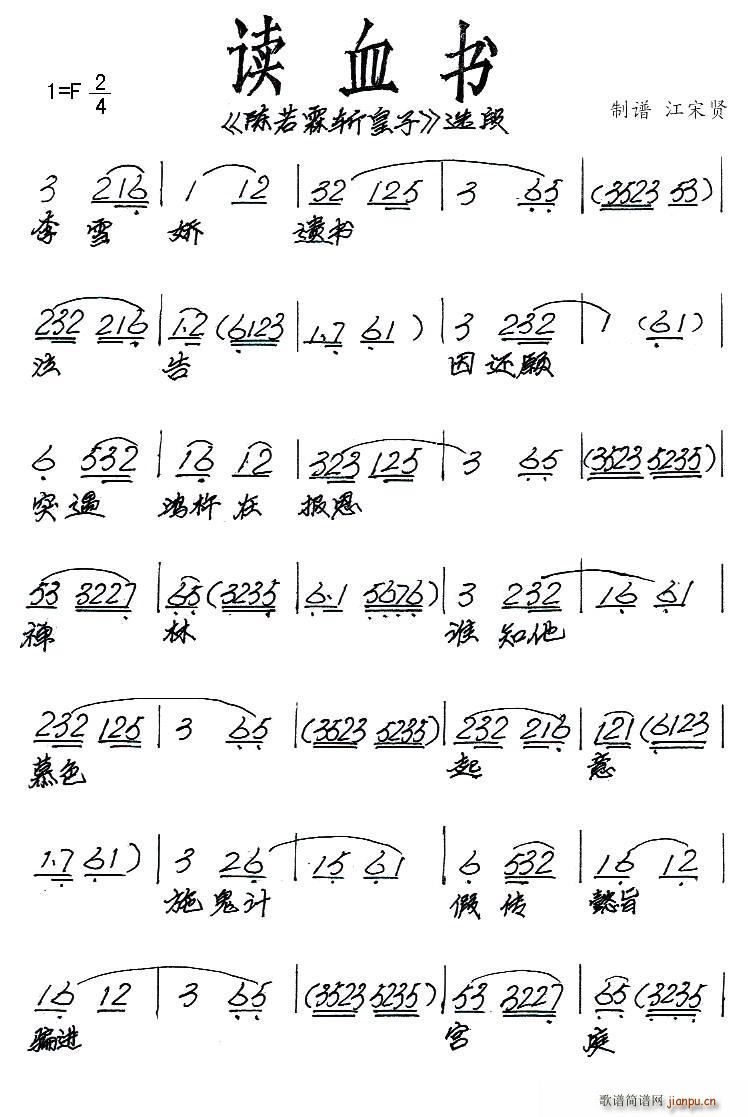 读血书
1=F 2/4
《陈若霖斩皇子》选段
制谱 江宋贤
3 216 | 1 12 | 32 125 | 3 65 | (3523 53) |
李雪 娇 遗书
232 216 | 1.2 (6123 | 1.7 61) | 3 232 | 1 (61) |
泣 告 因还愿
6 532 | 16 12 | 323 125 | 3 65 | (3523 5235) |
突遇 鸿析在 报恩
53 3227 | 65 (3235 | 6.1 5676) | 3 232 | 16 61 |
禅 林 谁 知他
232 125 | 3 65 | (3523 5235) | 232 216 | 121 (6123 |
慕色 起 意
1.7 61) | 3 26 | 15 61 | 6 532 | 16 12 |
施鬼计 假传 懿旨
16 12 | 3 65 | (3523 5235) | 53 3227 | 65 (3235 |
骗进 宫 庭
歌谱简谱网
jianpu.cn